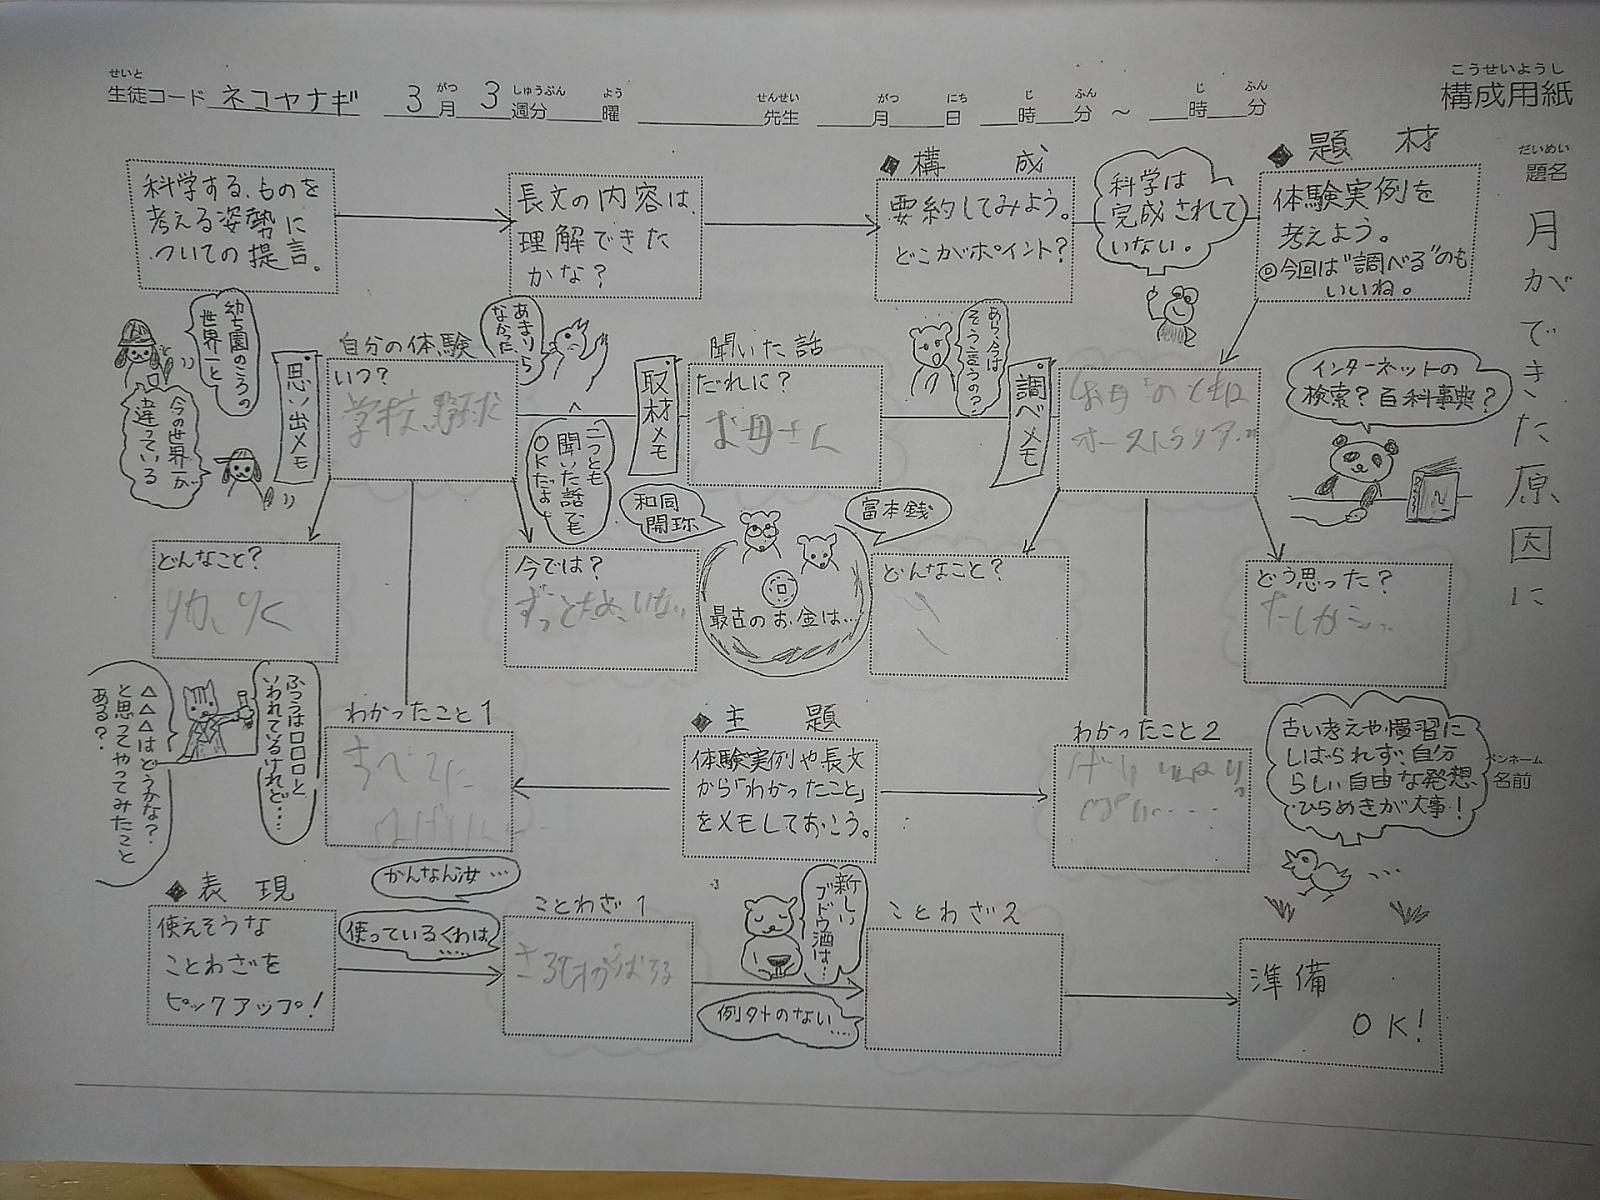 こうせいようし
構成用紙
せいと
生徒コード ネコヤナギ 3月 3週分 曜 先生 月 日 時 分 ～ 時 分
がつ しゅうぶん よう せんせい がつ にち じ ふん じ ふん
だいめい
題名
月ができた原因に
科学する、ものを
考える姿勢に
ついての提言。
長文の内容は、
理解できた
かな?
◆構成
要約してみよう。
どこがポイント?
科学は
完成されて
いない。
◆題材
体験実例を
考えよう。
◎今回は“調べる”のも
いいね。
幼ち園のころの
世界一と
今の世界一が
違っている
思い出メモ
自分の体験
いつ?
学校、野球
二つとも
聞いた話でも
OKだよ
取材メモ
聞いた話
だれに?
お母さん
あら、今は
そう言うの?
調べメモ
オーストラリア
インターネットの
検索? 百科事典?
どんなこと?
今では?
和同
開珎
富本銭
最古のお金は…
どんなこと?
どう思った?
たしかに
ふつうは口口口と
いわれているけれど…
△△△はどうかな?
と思ってやってみたこと
ある?
わかったこと1
◆主題
体験実例や長文
から「わかったこと」
をメモしておこう。
わかったこと2
古い考えや慣習に
しばられず、自分
らしい自由な発想、
ひらめきが大事!
ペンネーム
名前
◆表現
使えそうな
ことわざを
ピックアップ!
かんなん汝…
使っているくわは……
ことわざ1
新しい
ブドウ酒は…
例外のない……
ことわざ2
準備
OK!